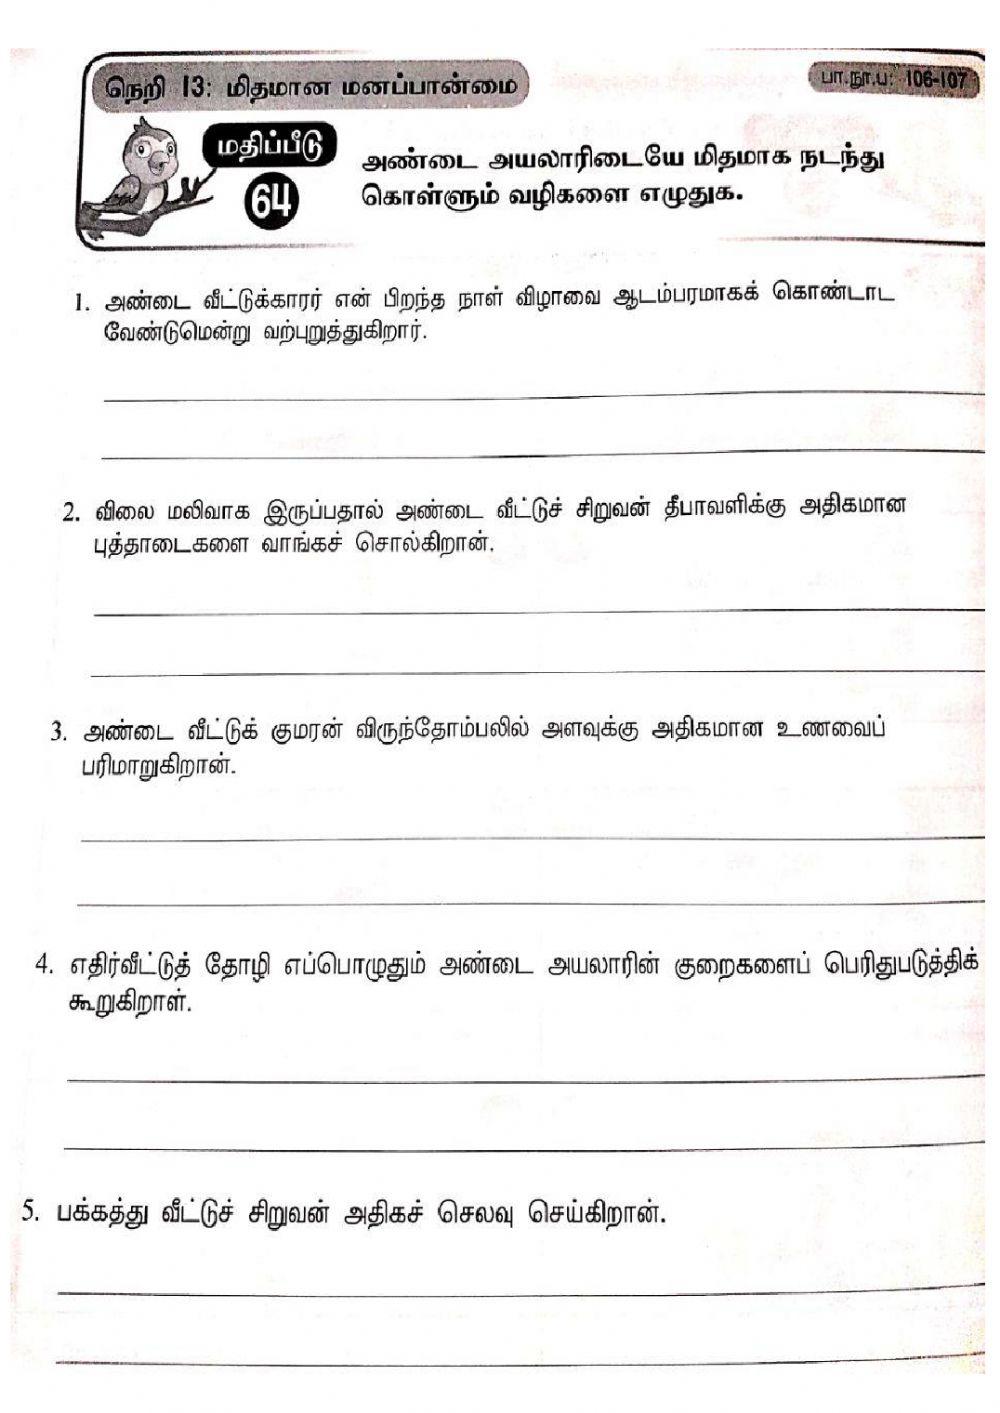 நெறி 13: மிதமான மனப்பான்மை
பா.நூ.ப: 106-107
மதிப்பீடு
64
அண்டை அயலாரிடையே மிதமாக நடந்து
கொள்ளும் வழிகளை எழுதுக.
1. அண்டை வீட்டுக்காரர் என் பிறந்த நாள் விழாவை ஆடம்பரமாகக் கொண்டாட
வேண்டுமென்று வற்புறுத்துகிறார்.
2. விலை மலிவாக இருப்பதால் அண்டை வீட்டுச் சிறுவன் தீபாவளிக்கு அதிகமான
புத்தாடைகளை வாங்கச் சொல்கிறான்.
3. அண்டை வீட்டுக் குமரன் விருந்தோம்பலில் அளவுக்கு அதிகமான உணவைப்
பரிமாறுகிறான்.
4. எதிர்வீட்டுத் தோழி எப்பொழுதும் அண்டை அயலாரின் குறைகளைப் பெரிதுபடுத்திக்
கூறுகிறாள்.
5. பக்கத்து வீட்டுச் சிறுவன் அதிகச் செலவு செய்கிறான்.